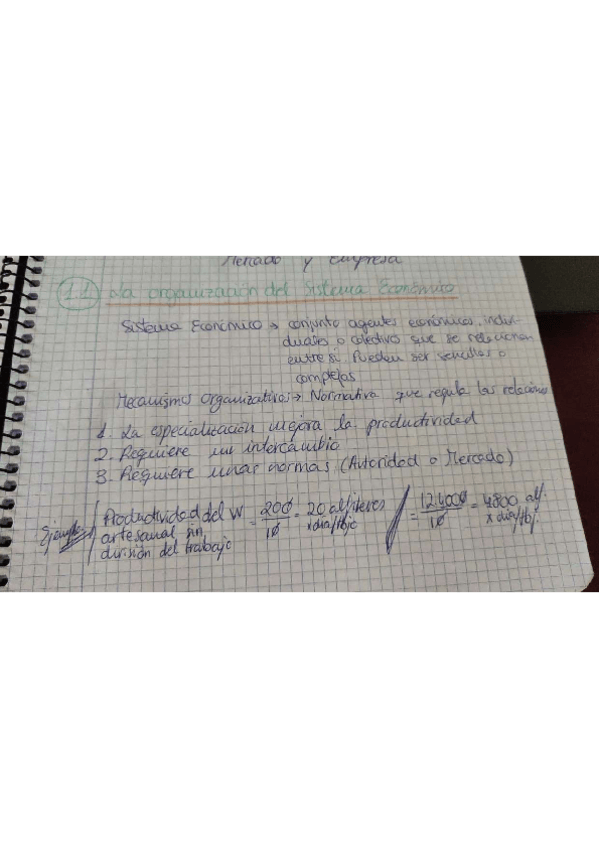 Mercado y empresa
1.1 La organización del Sistema Económico
Sistema Económico → conjunto agentes económicos, indivi-
duales o colectivos que se relacionan
entre sí. Pueden ser sencillos o
complejos
Mecanismos organizativos → Normativa que regula las relaciones
1. La especialización mejora la productividad
2. Requiere un intercambio
3. Requiere unas normas (Autoridad o Mercado)
Ejemplo Productividad del W
artesanal sin
división del trabajo
= 200/10 = 20 alfileres
x día/tbjo
= /10 = 4800 alf.
x día/tbj.